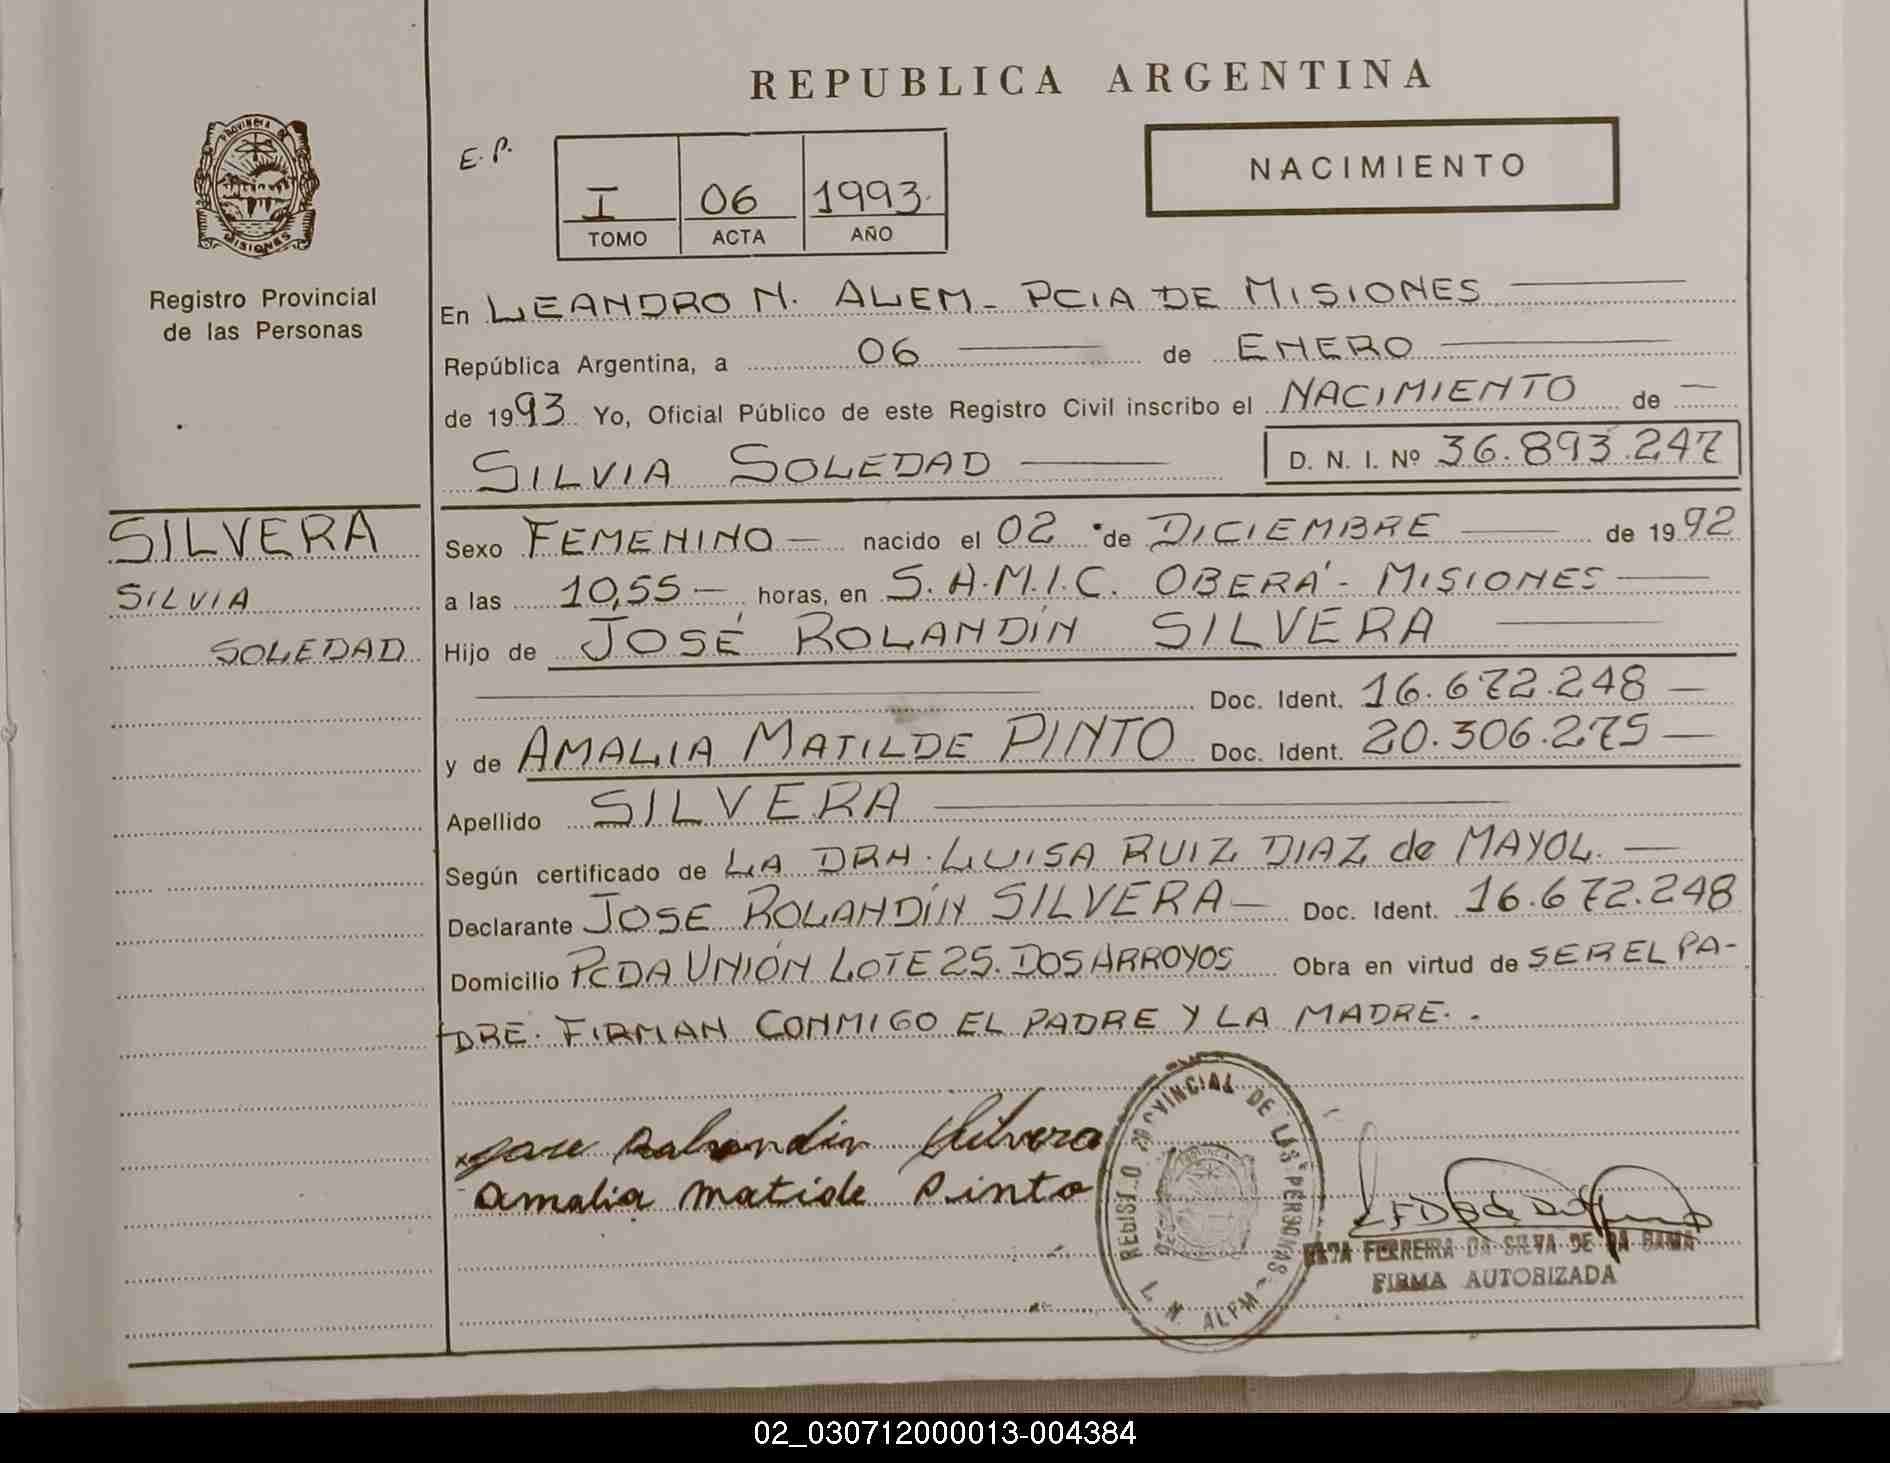 REPUBLICA ARGENTINA
PROVINCIA DE
MISIONES
Registro Provincial
de las Personas
E.P.
I 06 1993.
TOMO ACTA AÑO
NACIMIENTO
En LEANDRO N. ALEM - PCIA DE MISIONES
República Argentina, a 06 de ENERO
de 1993 Yo, Oficial Público de este Registro Civil inscribo el NACIMIENTO de
SILVIA SOLEDAD D. N. I. Nº 36.893.247
SILVERA
SILVIA
SOLEDAD
Sexo FEMENINO nacido el 02 de DICIEMBRE de 1992
a las 10,55 horas, en S.A.M.I.C. OBERÁ - MISIONES
Hijo de JOSÉ ROLANDÍN SILVERA
Doc. Ident. 16.672.248
y de AMALIA MATILDE PINTO Doc. Ident. 20.306.275
Apellido SILVERA
Según certificado de LA DRA. LUISA RUIZ DIAZ de MAYOL.
Declarante JOSE ROLANDÍN SILVERA Doc. Ident. 16.672.248
Domicilio PCDA UNIÓN LOTE 25. DOS ARROYOS Obra en virtud de SER EL PA-
DRE. FIRMAN CONMIGO EL PADRE Y LA MADRE.
Jose Rolandin Silvera
Amalia Matilde Pinto
REGISTRO PROVINCIAL DE LAS PERSONAS
L. N. ALEM
FERREIRA DA SILVA DE DA GAMA
FIRMA AUTORIZADA
02_030712000013-004384